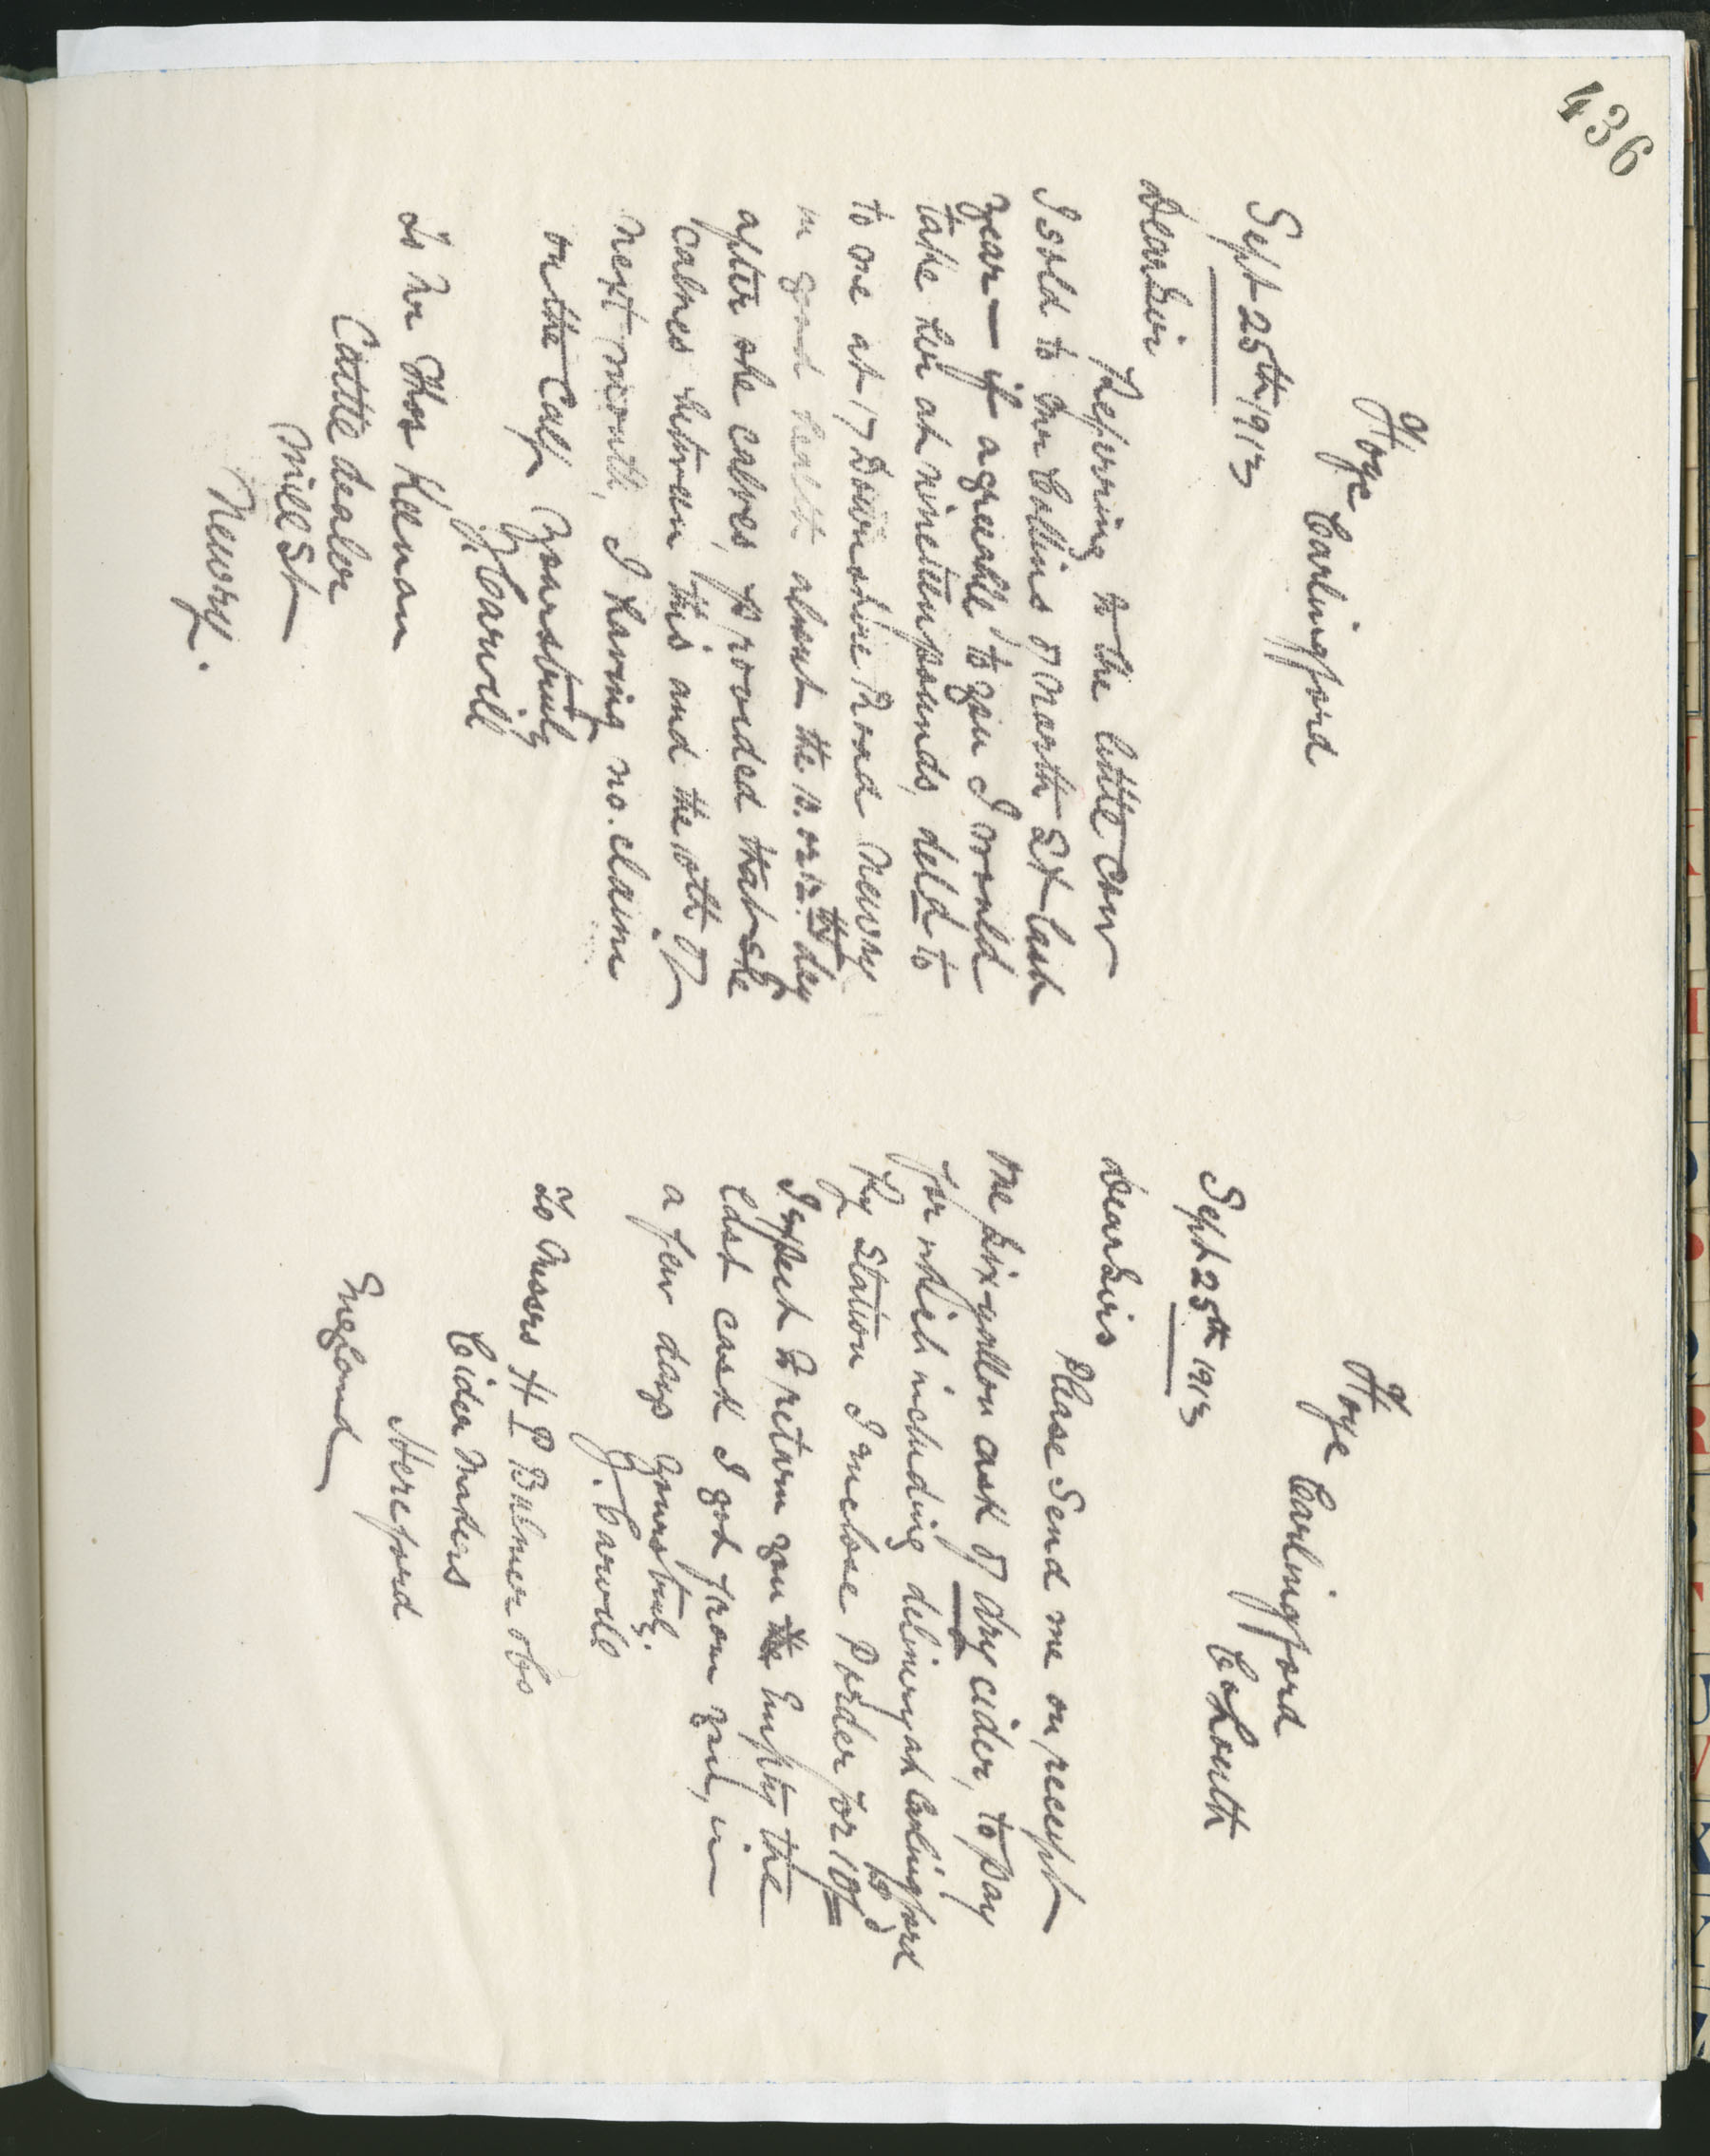 436
Foye
Carlingford
Sept 25th 1913
Dear Sir
Referring to the little cow
I sold to Mr Collins of North St last
year — if agreeable to you I would
take her at nineteen pounds, deld to
to me at 17 Downshire Road Newry
in good health about the 10. or 12th day
after she calves, provided that she
calves between this and the 10th of
next month, I having no. claim
on the Calf Yours truly
J. Carvill
To Mr Thos Keenan
Cattle dealer
Mill St
Newry.
Foye
Carlingford
Co Louth
Sept 25th 1913
Dear Sirs
Please Send me on receipt
one six-gallon cask of dry cider, to pay
for which including delivery at Carlingford
Ry Station I enclose P order for 10/=
I expect to return you the Empty the
last cask I got from you, in
a few days Yours truly.
J. Carvill
To Messrs H P Bulmer & Co
Cider Makers
Hereford
England